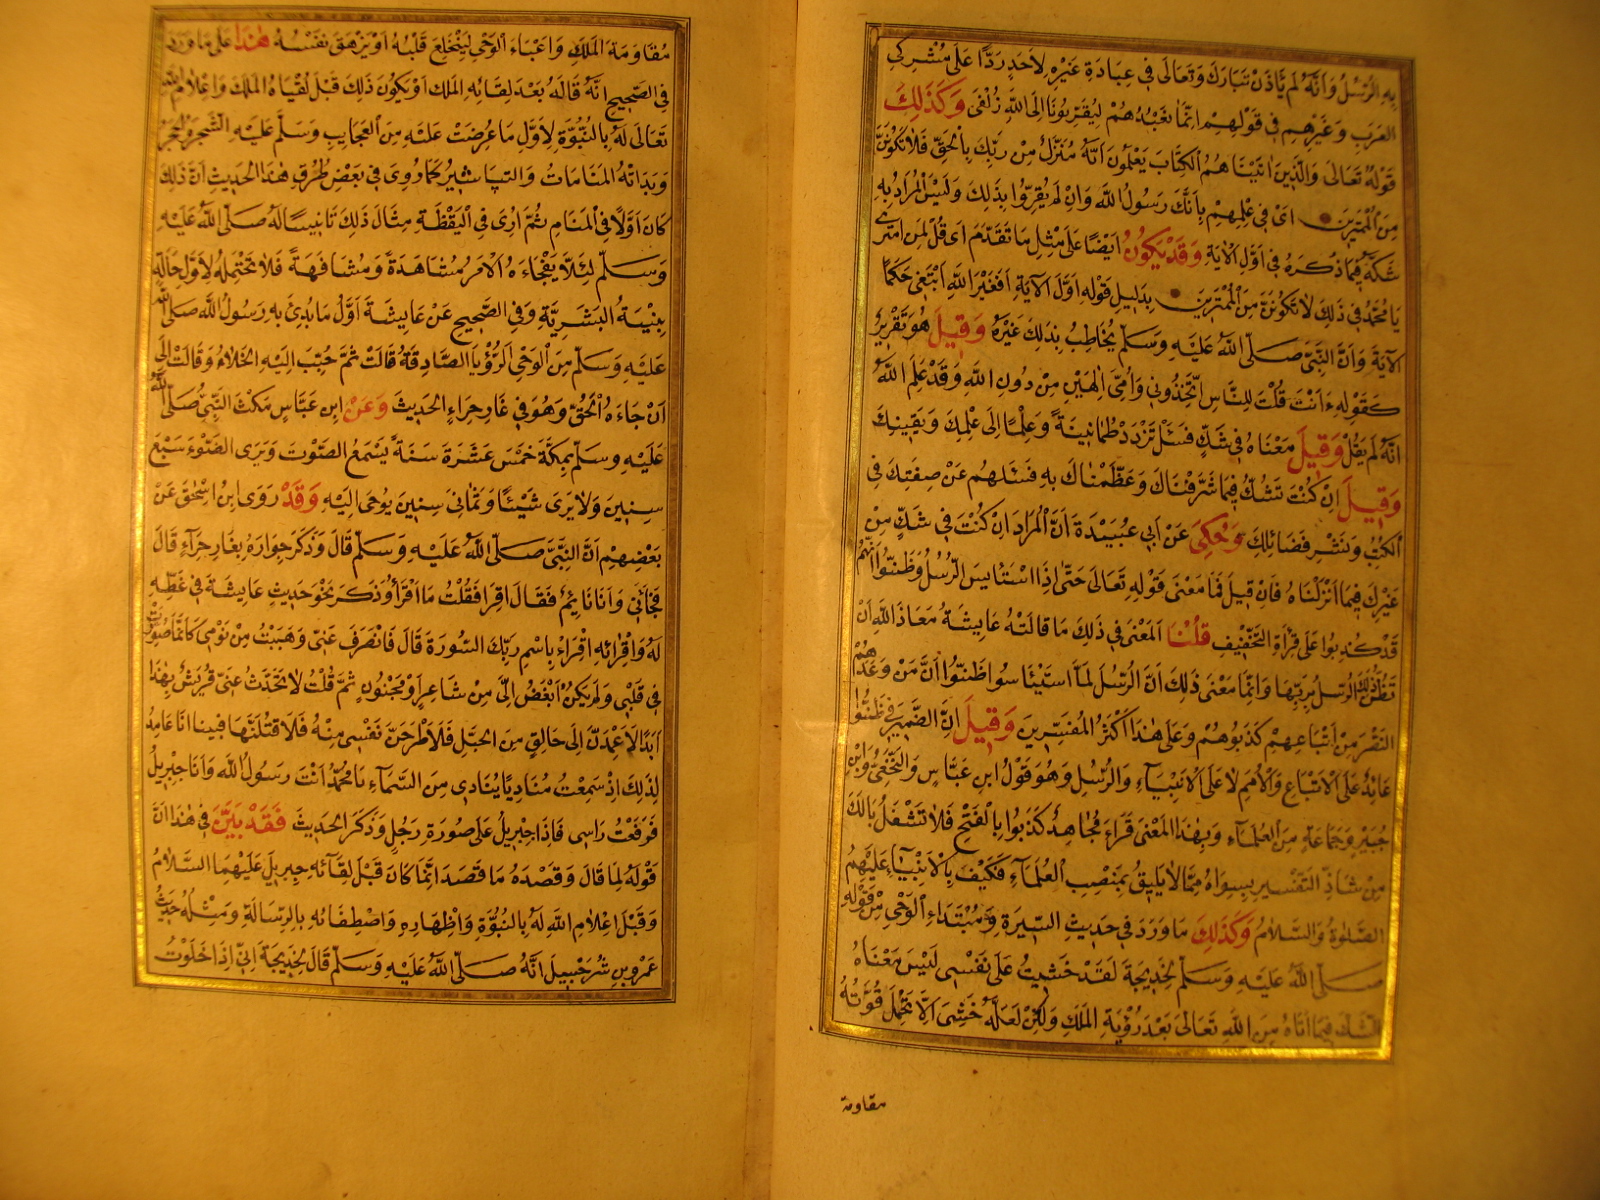 بِهِ الرُّسُلُ وَاَنَّهُ لَمْ يَأْذَنْ تَبَارَكَ وَتَعَالَى فِي عِبَادَةِ غَيْرِهِ لِاَحَدٍ رَدًّا عَلَى مُشْرِكِي
العَرَبِ وَغَيْرِهِمْ فِي قَوْلِهِمْ اِنَّمَا نَعْبُدُهُمْ لِيُقَرِّبُونَا اِلَى اللهِ زُلْفَى وَكَذٰلِكَ
قَوْلُهُ تَعَالَى وَالَّذِينَ اٰتَيْنَا هُمُ الْكِتَابَ يَعْلَمُونَ اَنَّهُ مُنَزَّلٌ مِنْ رَبِّكَ بِالْحَقِّ فَلَا تَكُونَنَّ
مِنَ الْمُمْتَرِينَ اَيْ فِي عِلْمِهِمْ بِاَنَّكَ رَسُولُ اللهِ وَاِنْ لَمْ يُقِرُّوا بِذَلِكَ وَلَيْسَ الْمُرَادُ بِهِ
شَكَّهُ فِيمَا ذَكَرَهُ فِي اَوَّلِ الْاٰيَةِ وَقَدْ يَكُونُ اَيْضًا عَلَى مِثْلِ مَا تَقَدَّمَ اَيْ قُلْ لِمَنِ امْتَرَى
يَا مُحَمَّدُ فِي ذَلِكَ لَا تَكُونَنَّ مِنَ الْمُمْتَرِينَ بِدَلِيلِ قَوْلِهِ اَوَّلَ الْاٰيَةِ اَفَغَيْرَ اللهِ اَبْتَغِي حَكَمًا
الْاٰيَةَ وَاَنَّ النَّبِيَّ صَلَّى اللهُ عَلَيْهِ وَسَلَّمَ يُخَاطِبُ بِذَلِكَ غَيْرَهُ وَقِيلَ هُوَ تَقْرِيرٌ
كَقَوْلِهِ ءَاَنْتَ قُلْتَ لِلنَّاسِ اتَّخِذُونِي وَاُمِّيَ اِلٰهَيْنِ مِنْ دُونِ اللهِ وَقَدْ عَلِمَ اللهُ
اَنَّهُ لَمْ يَقُلْ وَقِيلَ مَعْنَاهُ فِي شَكٍّ فَسَلْ تَزْدَدْ طُمَانِينَةً وَعِلْمًا اِلَى عِلْمِكَ وَيَقِينِكَ
وَقِيلَ اِنْ كُنْتَ تَشُكُّ فِيمَا شَرَّفْنَاكَ وَعَظَّمْنَاكَ بِهِ فَسَئَلْهُمْ عَنْ صِفَتِكَ فِي
الْكُتُبِ وَنَشْرِ فَضَائِلِكَ وَحُكِيَ عَنْ اَبِي عُبَيْدَةَ اَنَّ الْمُرَادَ اِنْ كُنْتَ فِي شَكٍّ مِنْ
غَيْرِكَ فِيمَا اَنْزَلْنَاهُ فَاِنْ قِيلَ فَمَا مَعْنَى قَوْلِهِ تَعَالَى حَتّٰى اِذَا اسْتَايْسَ الرُّسُلُ وَظَنُّوا اَنَّهُمْ
قَدْ كُذِبُوا عَلَى قِرَاءَةِ التَّخْفِيفِ قُلْنَا الْمَعْنَى فِي ذَلِكَ مَا قَالَتْهُ عَايِشَةُ مَعَاذَ اللهِ اَنْ
تَظُنَّ ذَلِكَ الرُّسُلُ بِرَبِّهَا وَاِنَّمَا مَعْنَى ذَلِكَ اَنَّ الرُّسُلَ لَمَّا اسْتَيْئَاسُوا ظَنُّوا اَنَّ مَنْ وَعَدَهُمُ
النَّصْرَ مِنْ اَتْبَاعِهِمْ كَذَبُوهُمْ وَعَلَى هٰذَا اَكْثَرُ الْمُفَسِّرِينَ وَقِيلَ اِنَّ الضَّمِيرَ فِي ظَنُّوا
عَائِدٌ عَلَى الْاَتْبَاعِ وَالْاُمَمِ لَا عَلَى الْاَنْبِيَآءِ وَالرُّسُلِ وَهُوَ قَوْلُ ابْنِ عَبَّاسٍ وَالنَّخَعِيِّ وَابْنِ
جُبَيْرٍ وَجَمَاعَةٍ مِنَ الْعُلَمَآءِ وَبِهٰذَا الْمَعْنَى قَرَاَ مُجَاهِدٌ كَذَبُوا بِالْفَتْحِ فَلَا تَشْغَلْ بَالَكَ
مِنْ شَاذِّ التَّفْسِيرِ بِسِوَاهُ مِمَّا لَا يَلِيقُ بِمَنْصِبِ الْعُلَمَآءِ فَكَيْفَ بِالْاَنْبِيَآءِ عَلَيْهِمُ
الصَّلٰوةُ وَالسَّلَامُ وَكَذٰلِكَ مَا وَرَدَ فِي حَدِيثِ السِّيرَةِ وَمُبْتَدَاءِ الْوَحْيِ مِنْ قَوْلِهِ
صَلَّى اللهُ عَلَيْهِ وَسَلَّمَ لِخَدِيجَةَ لَقَدْ خَشِيتُ عَلَى نَفْسِي لَيْسَ مَعْنَاهُ
الشَّكَّ فِيمَا اَتَاهُ مِنَ اللهِ تَعَالَى بَعْدَ رُؤْيَةِ الْمَلَكِ وَلٰكِنْ لَعَلَّهُ خَشِيَ اَلَّا تَحْمِلَ قُوَّتُهُ
مقاومة
مُقَاوَمَةَ الْمَلَكِ وَاَعْبَاءَ الْوَحْيِ لِيَنْخَلِعَ قَلْبُهُ اَوْ يَزْهَقَ نَفْسُهُ هٰذَا عَلَى مَا وَرَدَ
فِي الصَّحِيحِ اَنَّهُ قَالَهُ بَعْدَ لِقَائِهِ الْمَلَكَ اَوْ يَكُونُ ذَلِكَ قَبْلَ لُقْيَاهُ الْمَلَكَ وَاِعْلَامِ اللهِ
تَعَالَى لَهُ بِالنُّبُوَّةِ لِاَوَّلِ مَا عُرِضَتْ عَلَيْهِ مِنَ الْعَجَايِبِ وَسَلَّمَ عَلَيْهِ الشَّجَرُ وَالْحَجَرُ
وَبَدَاَتْهُ الْمَنَامَاتُ وَالتَّبَاشِيرُ كَمَا رُوِيَ فِي بَعْضِ طُرُقِ هٰذَا الْحَدِيثِ اَنَّ ذَلِكَ
كَانَ اَوَّلًا فِي الْمَنَامِ ثُمَّ اُرِيَ فِي الْيَقْظَةِ مِثَالَ ذَلِكَ تَانِيسًا لَهُ صَلَّى اللهُ عَلَيْهِ
وَسَلَّمَ لِئَلَّا يَفْجَاءَهُ الْاَمْرُ مُشَاهَدَةً وَمُشَافَهَةً فَلَا تَحْتَمِلُهُ لِاَوَّلِ حَالَةٍ
بِنْيَةُ الْبَشَرِيَّةِ وَفِي الصَّحِيحِ عَنْ عَايِشَةَ اَوَّلُ مَا بُدِئَ بِهِ رَسُولُ اللهِ صَلَّى اللهُ
عَلَيْهِ وَسَلَّمَ مِنَ الْوَحْيِ الرُّؤْيَا الصَّادِقَةُ قَالَتْ ثُمَّ حُبِّبَ اِلَيْهِ الْخَلَاءُ وَقَالَتْ اِلَى
اَنْ جَاءَهُ الْحَقُّ وَهُوَ فِي غَارِ حِرَاءٍ الْحَدِيثَ وَعَنْ ابْنِ عَبَّاسٍ مَكَثَ النَّبِيُّ صَلَّى اللهُ
عَلَيْهِ وَسَلَّمَ بِمَكَّةَ خَمْسَ عَشْرَةَ سَنَةً يَسْمَعُ الصَّوْتَ وَيَرَى الضَّوْءَ سَبْعَ
سِنِينَ وَلَا يَرَى شَيْئًا وَثَمَانِيَ سِنِينَ يُوحَى اِلَيْهِ وَقَدْ رَوَى ابْنُ اِسْحٰقَ عَنْ
بَعْضِهِمْ اَنَّ النَّبِيَّ صَلَّى اللهُ عَلَيْهِ وَسَلَّمَ قَالَ وَذَكَرَ جِوَارَهُ بِغَارِ حِرَآءٍ قَالَ
فَجَاۤءَنِي وَاَنَا نَايِمٌ فَقَالَ اقْرَا فَقُلْتُ مَا اَقْرَاُ وَذَكَرَ نَحْوَ حَدِيثِ عَايِشَةَ فِي غَطِّهِ
لَهُ وَاِقْرَائِهِ اِقْرَاءْ بِاسْمِ رَبِّكَ السُّورَةَ قَالَ فَانْصَرَفَ عَنِّي وَهَبَبْتُ مِنْ نَوْمِي كَاَنَّمَا صُوِّرَتْ
فِي قَلْبِي وَلَمْ يَكُنْ اَبْغَضُ اِلَيَّ مِنْ شَاعِرٍ اَوْ مَجْنُونٍ ثُمَّ قُلْتُ لَا تَحَدَّثُ عَنِّي قُرَيْشٌ بِهٰذَا
اَبَدًا لَاَعْمِدَنَّ اِلَى حَالِقٍ مِنَ الْجَبَلِ فَلَاَطْرَحَنَّ نَفْسِي مِنْهُ فَلَاَقْتُلَنَّهَا فَبَيْنَا اَنَا عَامِدٌ
لِذَلِكَ اِذْ سَمِعْتُ مُنَادِيًا يُنَادِي مِنَ السَّمَآءِ يَا مُحَمَّدُ اَنْتَ رَسُولُ اللهِ وَاَنَا جِبْرِيلُ
فَرَفَعْتُ رَاسِي فَاِذَا جِبْرِيلُ عَلَى صُورَةِ رَجُلٍ وَذَكَرَ الْحَدِيثَ فَقَدْ بَيَّنَ فِي هٰذَا اَنَّ
قَوْلَهُ لِمَا قَالَ وَقَصْدَهُ مَا قَصَدَ اِنَّمَا كَانَ قَبْلَ لِقَآئِهِ جِبْرِيلَ عَلَيْهِمَا السَّلَامُ
وَقَبْلَ اِعْلَامِ اللهِ لَهُ بِالنُّبُوَّةِ وَاِظْهَارِهِ وَاصْطِفَائِهِ بِالرِّسَالَةِ وَمِثْلُهُ حَدِيثُ
عَمْرِو بْنِ شُرَحْبِيلَ اَنَّهُ صَلَّى اللهُ عَلَيْهِ وَسَلَّمَ قَالَ لِخَدِيجَةَ اِنِّي اِذَا خَلَوْتُ